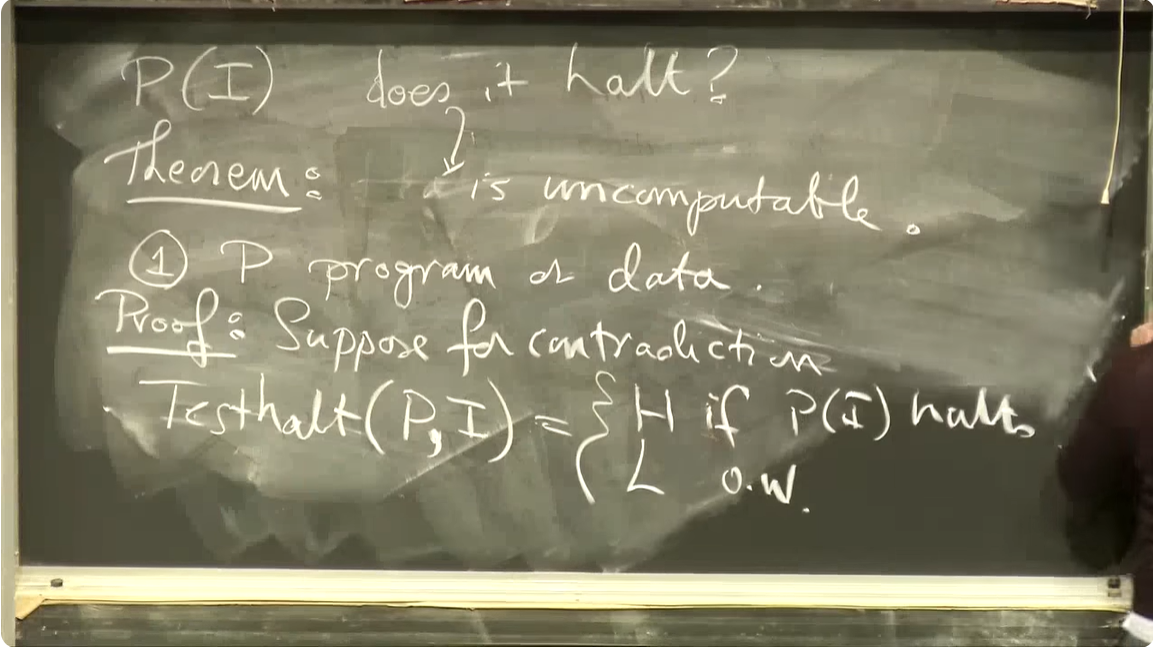 P(I) does it halt?
Theorem: is uncomputable.
① P program or data.
Proof: Suppose for contradiction
Testhalt(P, I) = { H if P(I) halts
L o.w.